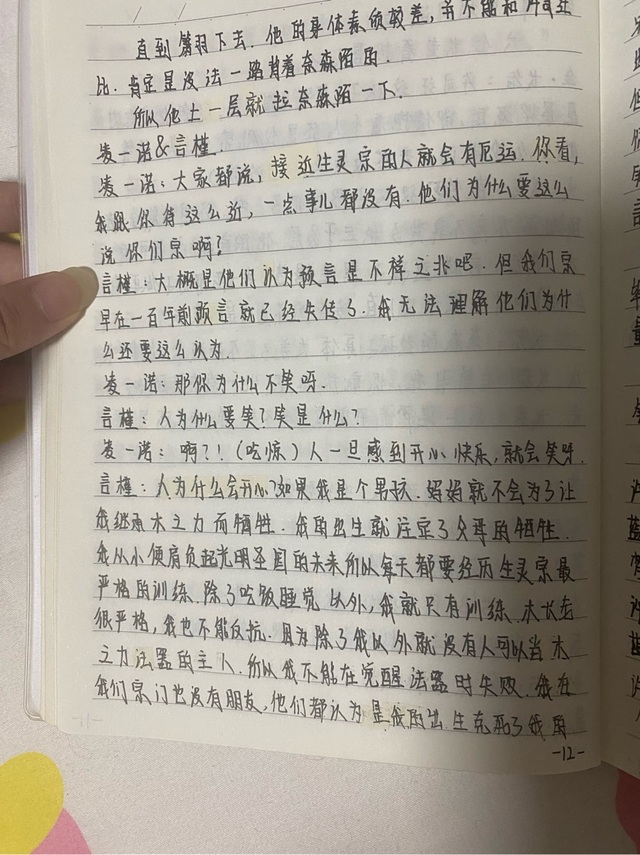 直到筋羽下去.他的身体素质较差,并不能和许司玨
比.肯定是没法一路背着奈森陌的.
所以他上一层就拉奈森陌一下.
凌一诺&言槿.
凌一诺:大家都说,接近生灵宗的人就会有厄运.你看,
我跟你待这么近,一点事儿都没有.他们为什么要这么
说你们宗啊?
言槿:大概是他们认为预言是不祥之兆吧.但我们宗
早在一百年前预言就已经失传了.我无法理解他们为什
么还要这么认为.
凌一诺:那你为什么不笑呀.
言槿:人为什么要笑?笑是什么?
凌一诺:啊?!(吃惊)人一旦感到开心快乐,就会笑呀.
言槿:人为什么会开心?如果我是个男孩.妈妈就不会为了让
我继承木之力而牺牲.我的出生就注定了父母的牺牲.
我从小便肩负起光明圣国的未来所以每天都要经历生灵宗最
严格的训练.除了吃饭睡觉以外,我就只有训练.木长老
很严格,我也不能反抗.因为除了我以外就没有人可以当木
之力法器的主人.所以我不能在觉醒法器时失败.我在
我们宗门也没有朋友,他们都认为是我的出生克死了我的
-12-